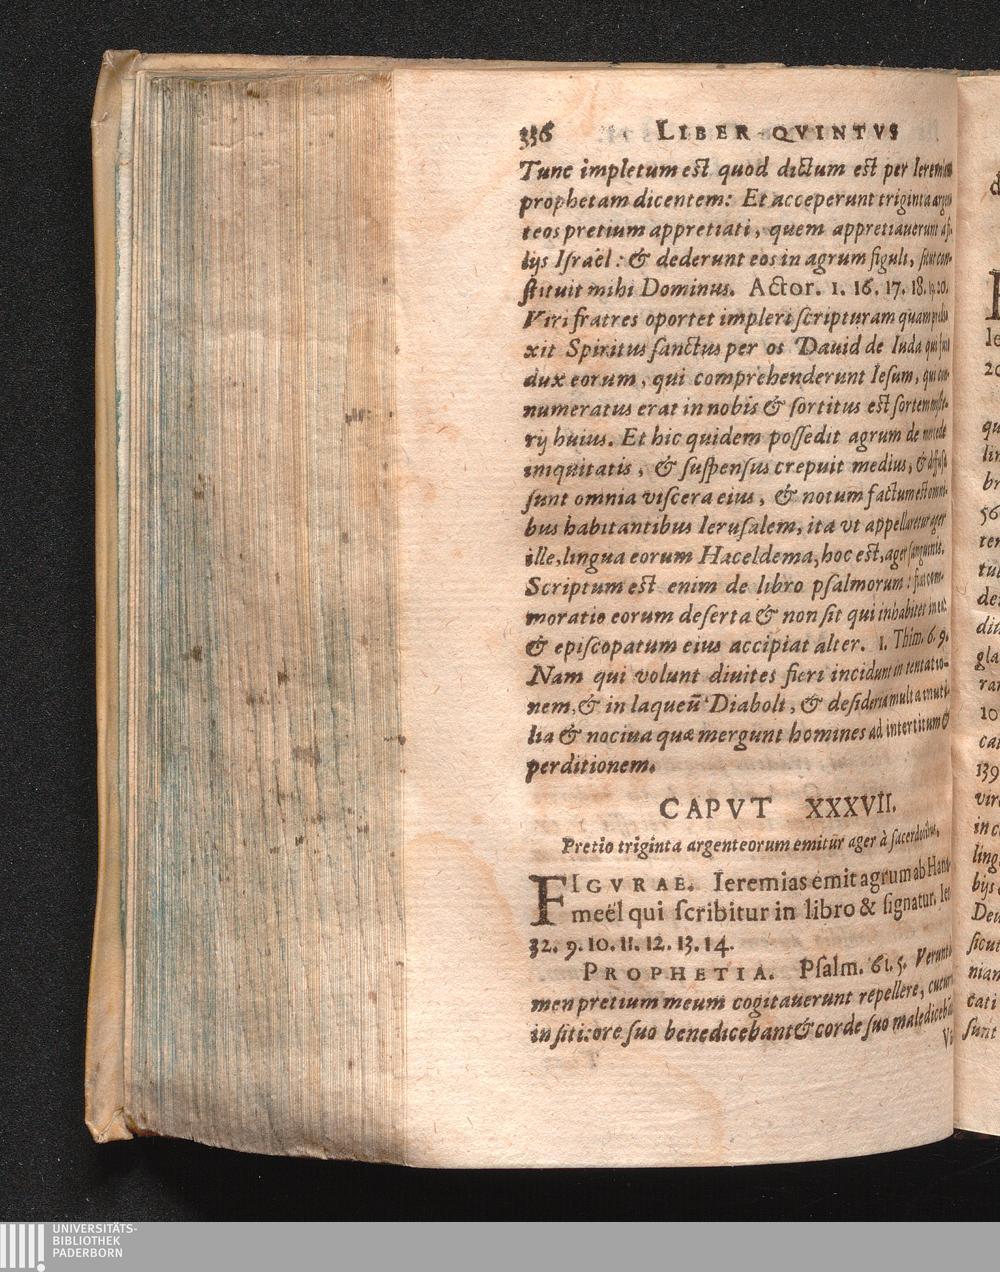 336 LIBER QVINTVS
Tunc impletum est quod dictum est per Ieremiam
prophetam dicentem: Et acceperunt triginta argen
teos pretium appretiati, quem appretiauerunt a fi-
lijs Israël: & dederunt eos in agrum figuli, sicut con-
stituit mihi Dominus. Actor. 1. 16. 17. 18. 19. 20.
Viri fratres oportet impleri scripturam quam prædi
xit Spiritus sanctus per os Dauid de Iuda qui fuit
dux eorum, qui comprehenderunt Iesum, qui con-
numeratus erat in nobis & sortitus est sortem miste-
rij huius. Et hic quidem possedit agrum de mercede
iniquitatis, & suspensus crepuit medius, & diffusa
sunt omnia viscera eius, & notum factum est omni-
bus habitantibus Ierusalem, ita vt appellaretur ager
ille, lingua eorum Haceldema, hoc est, ager sanguinis.
Scriptum est enim de libro psalmorum: fiat com-
moratio eorum deserta & non sit qui inhabitet in ea:
& episcopatum eius accipiat alter. 1. Thim. 6. 9.
Nam qui volunt diuites fieri incidunt in tentatio-
nem, & in laqueū Diaboli, & desideria multa inuti-
lia & nociua quæ mergunt homines ad intertitum &
perditionem.
CAPVT XXXVII.
Pretio triginta argenteorum emitur ager à sacerdotibus.
FIGVRAE. Ieremias emit agrum ab Hana
meël qui scribitur in libro & signatur. Ier
32. 9. 10. 11. 12. 13. 14.
PROPHETIA. Psalm. 61. 5. Verunta
men pretium meum cogitauerunt repellere, cucurri
in siti: ore suo benedicebant & corde suo maledicebāt
Vi
le
20
qu
lin
br
56
ten
tul
de
diu
gla
ran
10
can
139
viro
in c
ling
Deu
sicut
nian
cati
sunt
UNIVERSITÄTS-
BIBLIOTHEK
PADERBORN